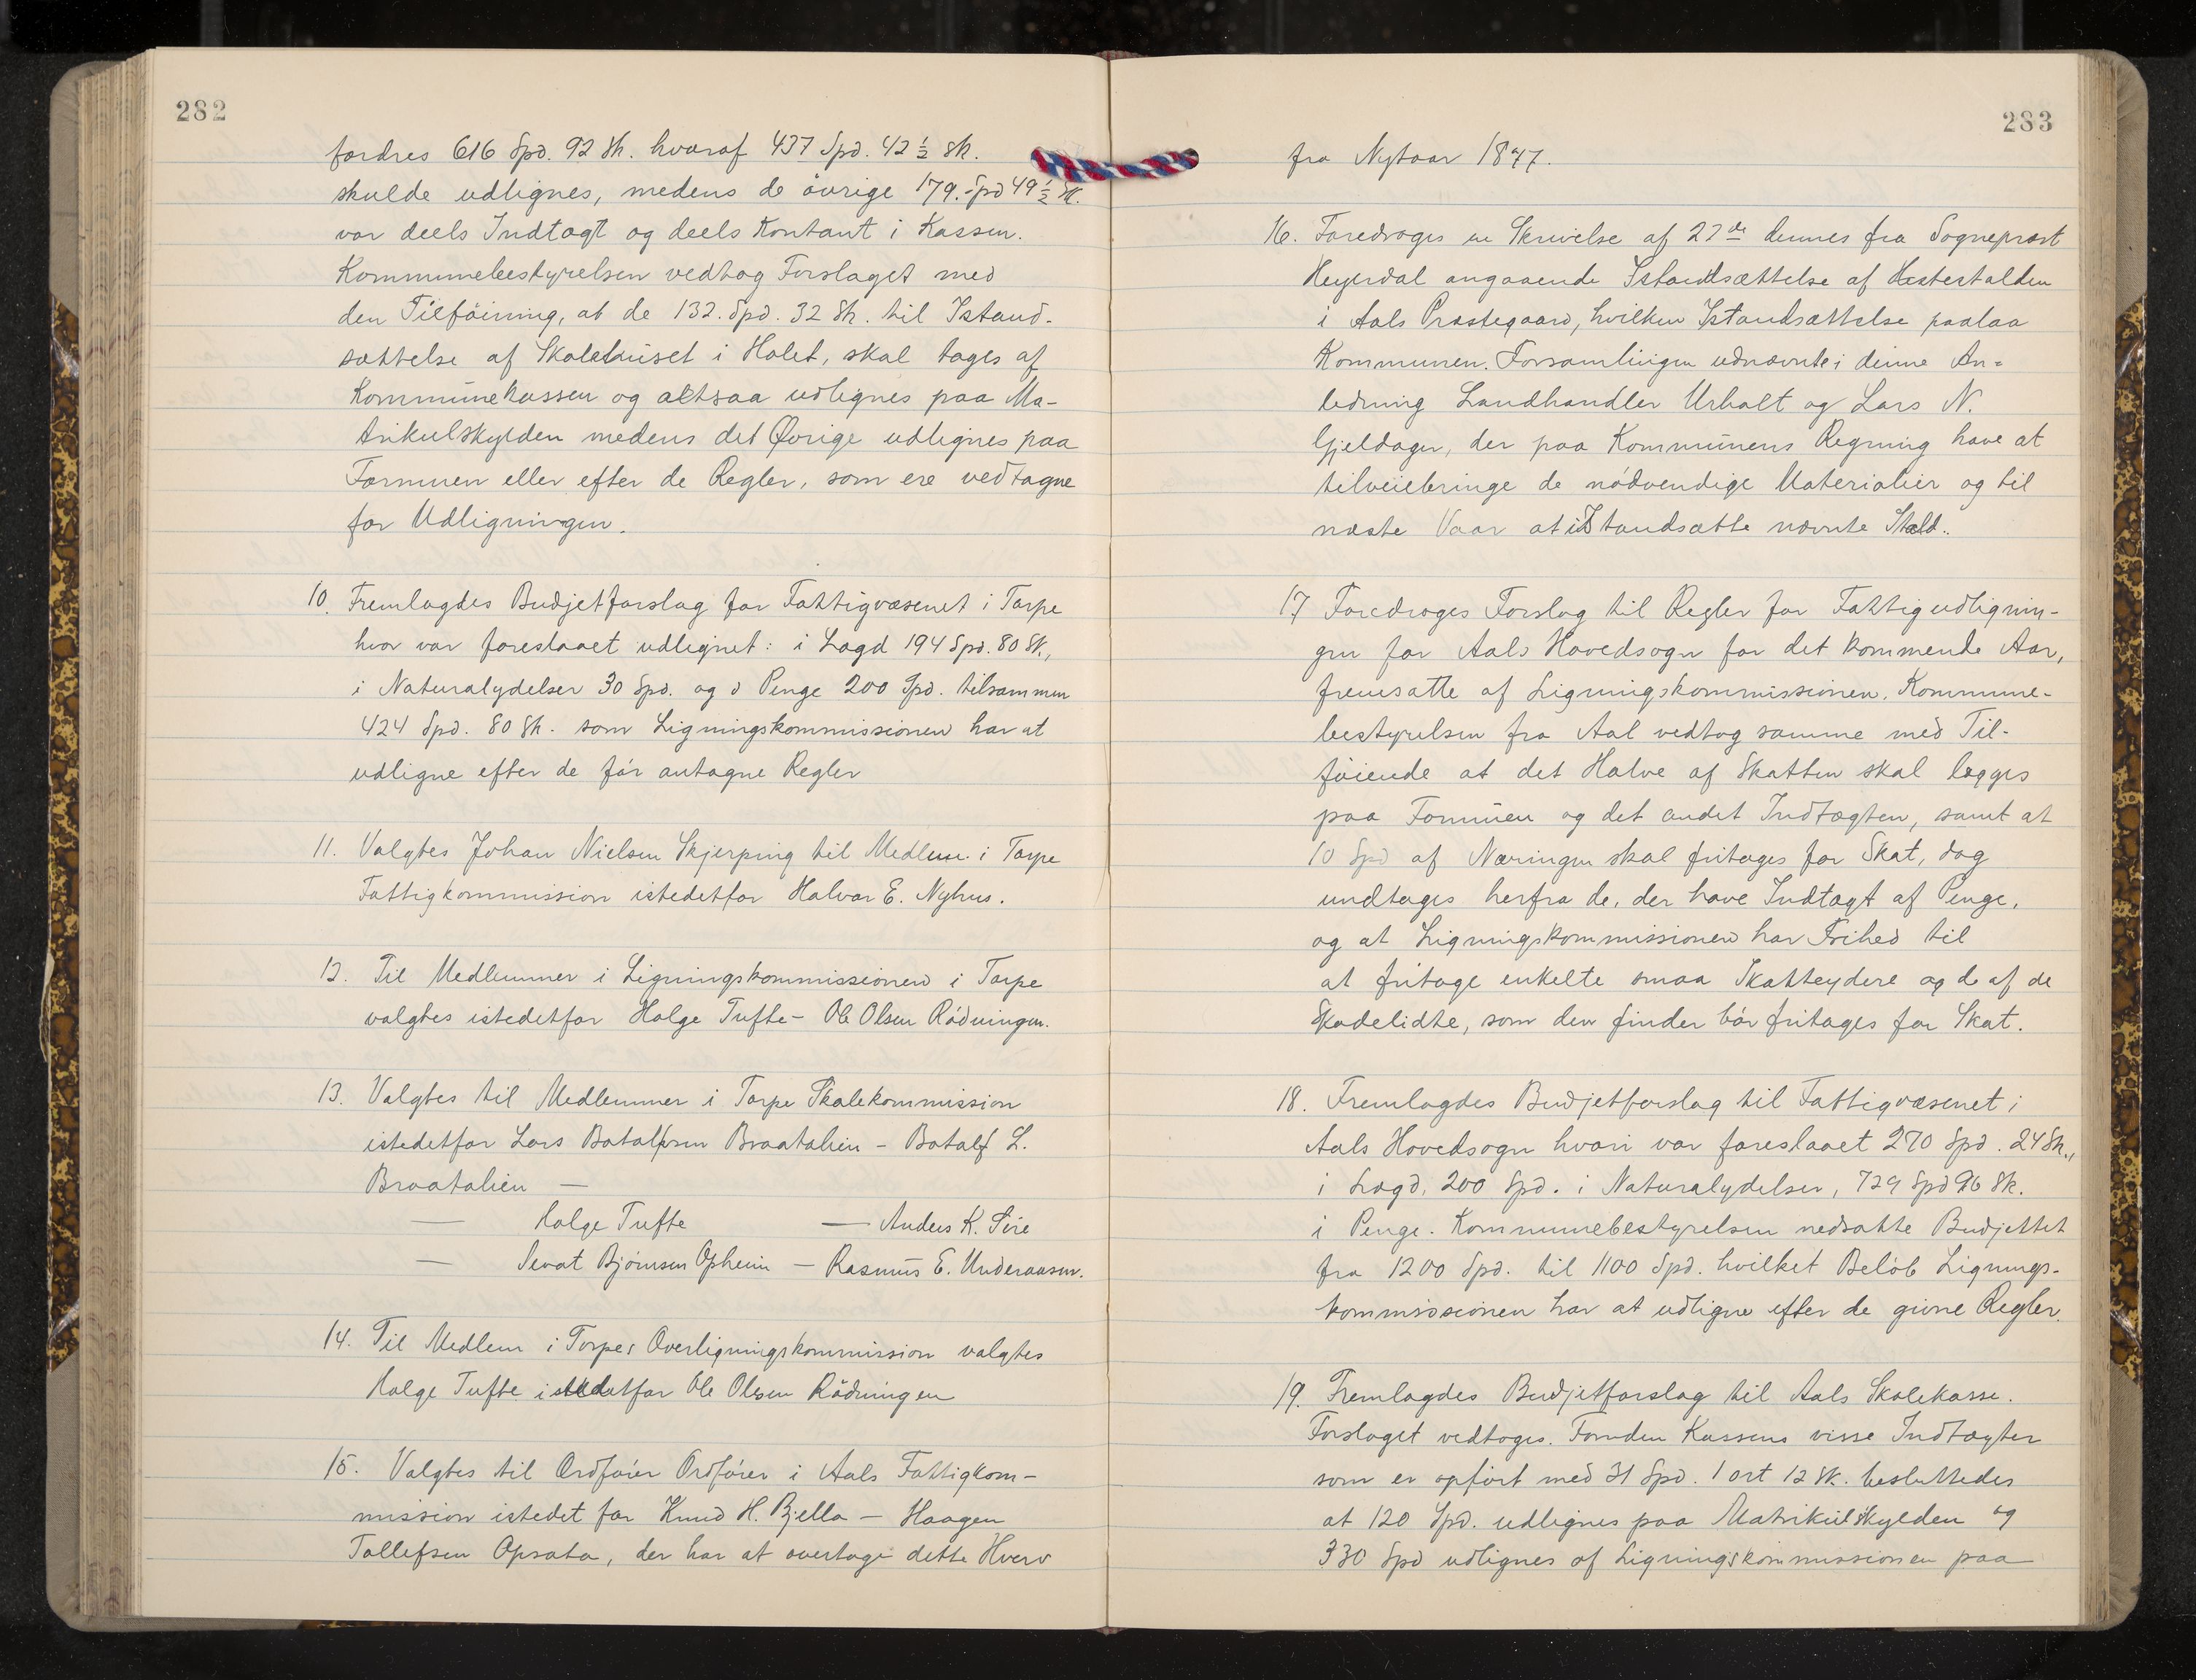 282
fordres 616 Spd. 92 Sk. hvoraf 437 Spd. 42 ½ sk.
skulde udlignes, medens de øvrige 179. Spd 49 ½ Sk.
var deels Indtægt og deels Kontant i Kassen.
Kommunebestyrelsen vedtog Forslaget med
den Tilføining, at de 132. Spd. 32 Sk. til Istand-
sættelse af Skolehuset i Holet, skal tages af
Kommunekassen og altsaa udlignes paa Ma-
trikulskylden medens det Øvrige udlignes paa
Formuen eller efter de Regler, som ere vedtagne
for Udligningen.
10. Fremlagdes Budjetforslag for Fattigvæsenet i Torpe
hvor var foreslaaet udlignet: i Lægd 194 Spd. 80 Sk.,
i Naturalydelser 30 Spd. og i Penge 200 Spd. tilsammen
424 Spd. 80 Sk. som Ligningskommissionen har at
udligne efter de før antagne Regler
11. Valgtes Johan Nielsen Skjerping til Medlem i Torpe
Fattigkommission istedetfor Halvor E. Nyhus.
12. Til Medlemmer i Ligningskommissionen i Torpe
valgtes istedetfor Holge Tufte - Ole Olsen Rødningen.
13. Valgtes til Medlemmer i Torpe Skolekommission
istedetfor Lars Botolfsen Braatalien - Botolf L.
Braatalien —
— Holge Tufte — Anders K. Sire
— Sevat Bjørnsen Opheim — Rasmus E. Underaasen.
14. Til Medlem i Torpes Overligningskommission valgtes
Holge Tufte istedetfor Ole Olsen Rødningen
15. Valgtes til Ordfører Ordfører i Aals Fattigkom-
mission istedet for Knud H. Bjella — Haagen
Tollefsen Opsata, der har at overtage dette Hverv
283
fra Nytaar 1847.
16. Foredroges en Skrivelse af 27de dennes fra Sogneprest
Heyerdal angaaende Istandsættelse af Hestestalden
i Aals Præstegaard, hvilken Istandsættelse paalaa
Kommunen. Forsamlingen udnævnte i denne An-
ledning Landhandler Urholt og Lars N.
Gjeldager, der paa Kommunens Regning have at
tilveiebringe de nødvendige Materialier og til
næste Vaar at iStandsætte nævnte Stald.
17 Foredroges Forslag til Regler for Fattigudlignin-
gen for Aals Hovedsogn for det kommende Aar,
fremsatte af Ligningskommissionen. Kommune-
bestyrelsen fra Aal vedtog samme med Til-
føiende at det Halve af Skatten skal lægges
paa Formuen og det andet Indtægten, samt at
10 Spd af Næringen skal fritages for Skat, dog
undtages herfra de, der have Indtægt af Penge,
og at Ligningskommissionen har Frihed til
at fritage enkelte smaa Skatteydere og de af de
Skadelidte, som den finder bør fritages for Skat.
18. Fremlagdes Budjetforslag til Fattigvæsenet i
Aals Hovedsogn hvori var foreslaaet 270 Spd. 24 Sk.,
i Lægd, 200 Spd. i Naturalydelser, 729 Spd 96 Sk.
i Penge. Kommunebestyrelsen nedsatte Budjettet
fra 1200 Spd. til 1100 Spd. hvilket Beløb Lignings-
kommissionen har at udligne efter de givne Regler.
19. Fremlagdes Budjetforslag til Aals Skolekasse.
Forslaget vedtoges. Foruden Kassens visse Indtægter
som er opført med 31 Spd. 1 ort 12 Sk. besluttedes
at 120 Spd. udlignes paa Matrikulskylden og
330 Spd udlignes af Ligningskommissionen paa